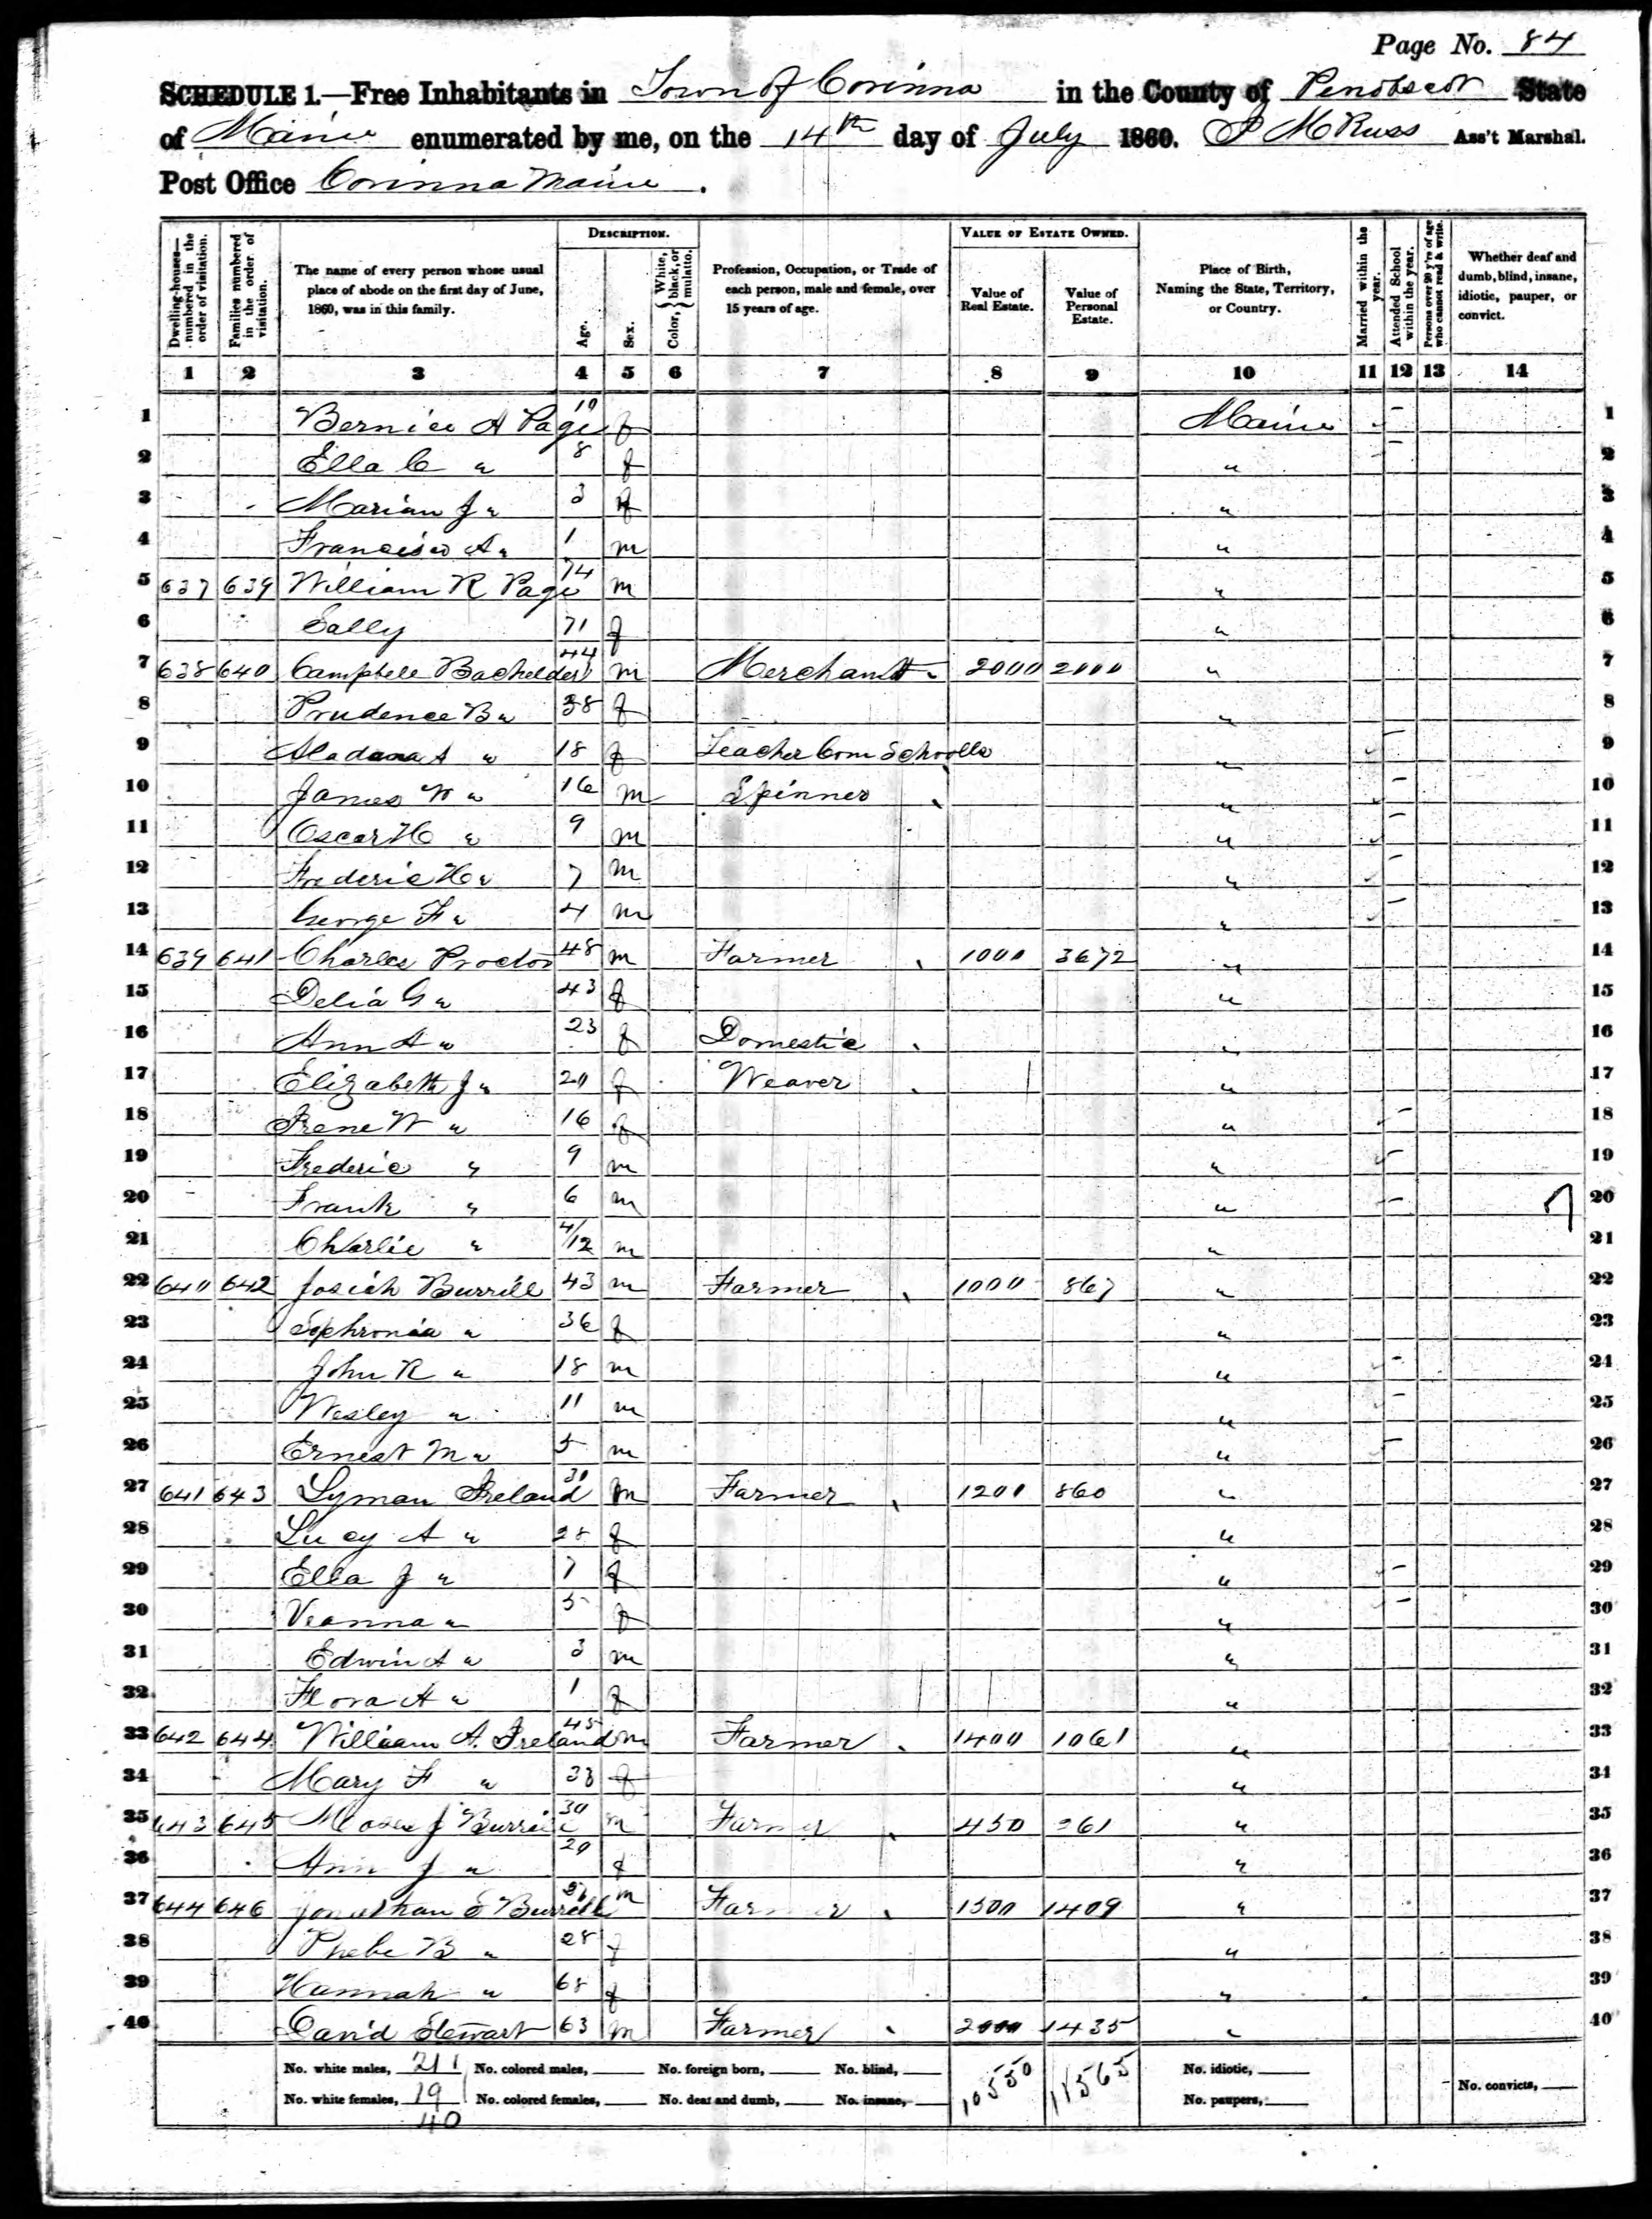 Page No. 84
SCHEDULE 1.—Free Inhabitants in Town of Corinna in the County of Penobscot State
of Maine enumerated by me, on the 14th day of July 1860. P M Russ Ass't Marshal.
Post Office Corinna Maine.
Dwelling-houses—numbered in the order of visitation. Families numbered in the order of visitation. The name of every person whose usual place of abode on the first day of June, 1860, was in this family. DESCRIPTION. Age. Sex. Color, { White, black, or mulatto. Profession, Occupation, or Trade of each person, male and female, over 15 years of age. VALUE OF ESTATE OWNED. Value of Real Estate. Value of Personal Estate. Place of Birth, Naming the State, Territory, or Country. Married within the year. Attended School within the year. Persons over 20 y'rs of age who cannot read & write. Whether deaf and dumb, blind, insane, idiotic, pauper, or convict.
1 2 3 4 5 6 7 8 9 10 11 12 13 14
1 Bernice A Page 10 f Maine 1
2 Ella C " 8 f " 2
3 Marian J " 3 f " 3
4 Francisco A " 1 m " 4
5 637 639 William R Page 74 m " 5
6 Sally 71 f " 6
7 638 640 Campbell Bachelder 44 m Merchant 2000 2000 " 7
8 Prudence B " 38 f " 8
9 A " 18 f Teacher Com Schools " 9
10 James W " 16 m Spinner " 10
11 Oscar H " 9 m " 11
12 Frederic H " 7 m " 12
13 George F " 4 m " 13
14 639 641 Charles Proctor 48 m Farmer 1000 3672 " 14
15 Delia G " 43 f " 15
16 Ann A " 23 f Domestic " 16
17 Elizabeth J " 20 f Weaver " 17
18 Irene W " 16 f " 18
19 Frederic " 9 m " 19
20 Frank " 6 m " 20
21 Charlie " 4/12 m " 21
22 640 642 Josiah Burrill 43 m Farmer 1000 867 " 22
23 Sophronia " 36 f " 23
24 John R " 18 m " 24
25 Wesley " 11 m " 25
26 Ernest M " 5 m " 26
27 641 643 Lyman Ireland 30 m Farmer 1200 860 " 27
28 Lucy A " 28 f " 28
29 Ella J " 7 f " 29
30 Veanna " 5 f " 30
31 Edwin A " 3 m " 31
32 Flora A " 1 f " 32
33 642 644 William A. Ireland 45 m Farmer 1400 1061 " 33
34 Mary F " 33 f " 34
35 643 645 Moses J Burrill 30 m Farmer 450 261 " 35
36 Ann J " 20 f " 36
37 644 646 Jonathan S Burrill m Farmer 1500 1409 " 37
38 Phebe B " 28 f " 38
39 Hannah " 68 f " 39
40 David Stewart 63 m Farmer 2000 1435 " 40
No. white males, 21 No. colored males, No. foreign born, No. blind, 10550 11565 No. idiotic,
No. white females, 19 No. colored females, No. deaf and dumb, No. insane, No. paupers, No. convicts,
40